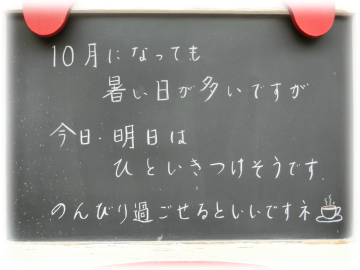 10月になっても
暑い日が多いですが
今日・明日は
ひといきつけそうです.
のんびり過ごせるといいですネ